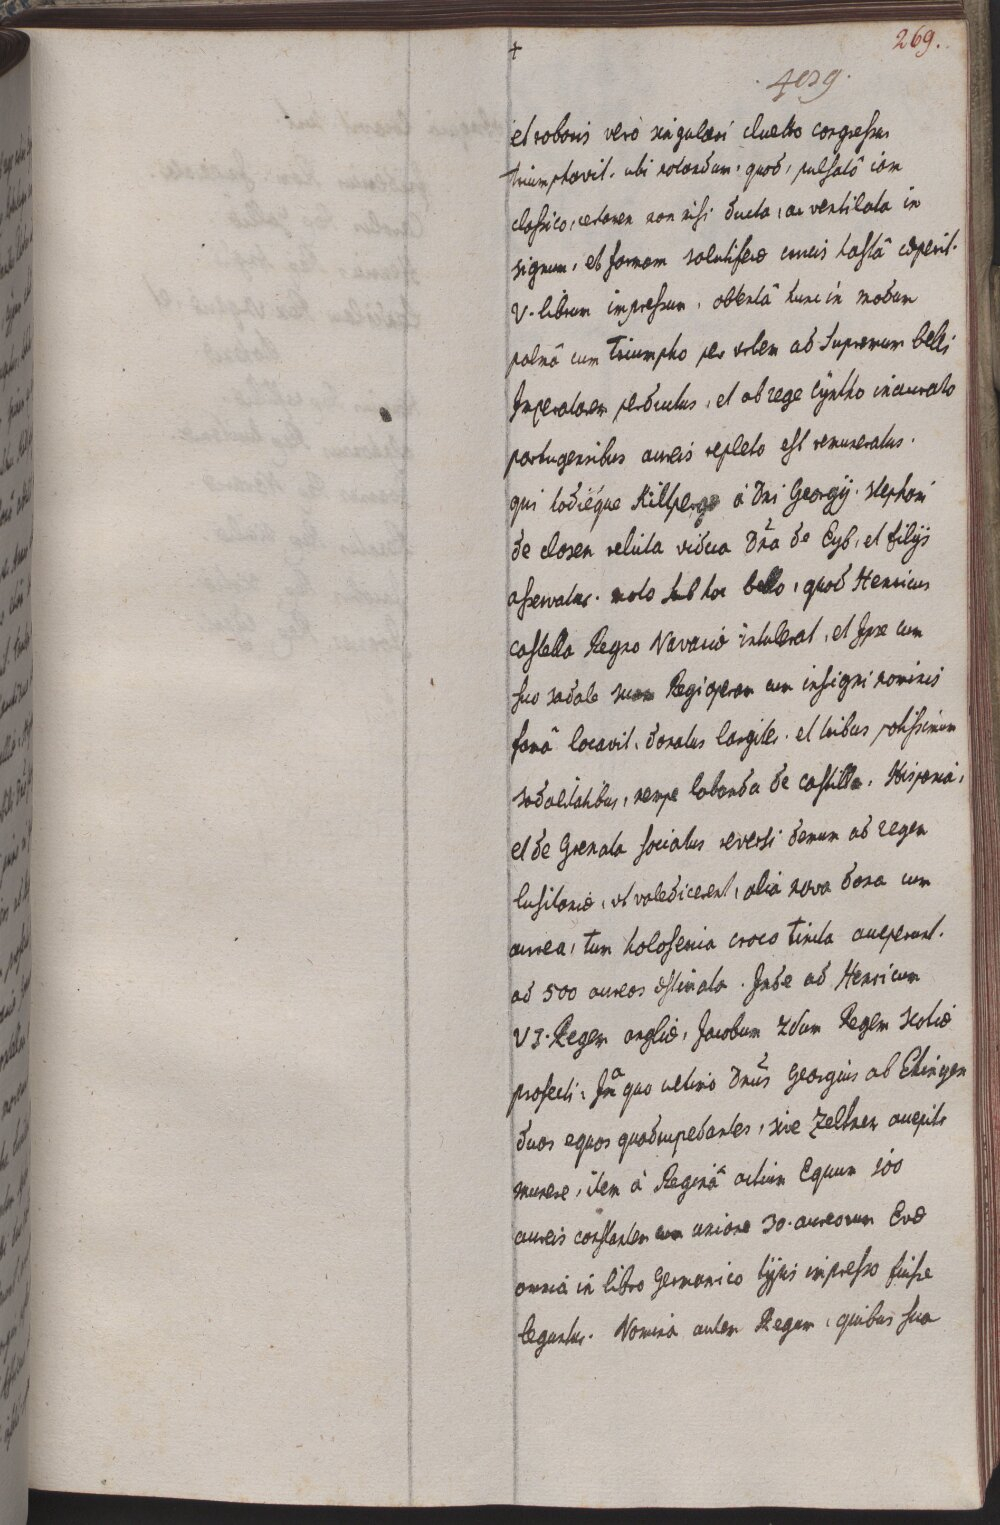 269.
409.
et roboris vero singulari duello congressus
triumphavit. ubi notandum, quod, pulsatâ iam
classico, certamen non nisi ducta, ac ventilata in
signum, et formam salutiferæ crucis hastâ cœperit.
V. librum impressum, obtentâ hunc in modum
palmâ cum triumpho per urbem ad supremum belli
Imperatorem perductus, et ab rege Cÿntho inaurato
portugensibus aureis repleto est remuneratus.
qui hodiéque Killperge à Dni Georgÿ Stephani
de closen relicta vidua Dña de Eyb, et filÿs
asservatur. moto sub hoc bello, quod Henricus
castella Regno Navariæ intulerat, et Ipse cum
suo sodale suam Regi operam cum insigni nominis
famâ locavit, donatus largiter. et tribus potissimum
sodalitatibus, nempe labanda de castilla, Hispania,
et de Grenata sociatus reversi demum ad regem
lusitaniæ, ut valedicerent, alia nova dona cum
aurea, tum holoserica croco tincta acceperunt.
ad 500 aureos æstimata. Inde ad Henricum
VI. Regem angliæ, Jacobum 2dum Regem Scotiæ
profecti: In quo ultimo Dnus Georgius ab Ehingen
duos equos quadrupedantes, sive Zeltner accepit
munere, item à Reginâ actium Equum 100
aureis constantem cum unione 30. aureorum Evæ
omnia in libro Germanico typis impresso fuisse
leguntur. Nomina autem Regum, quibus sua